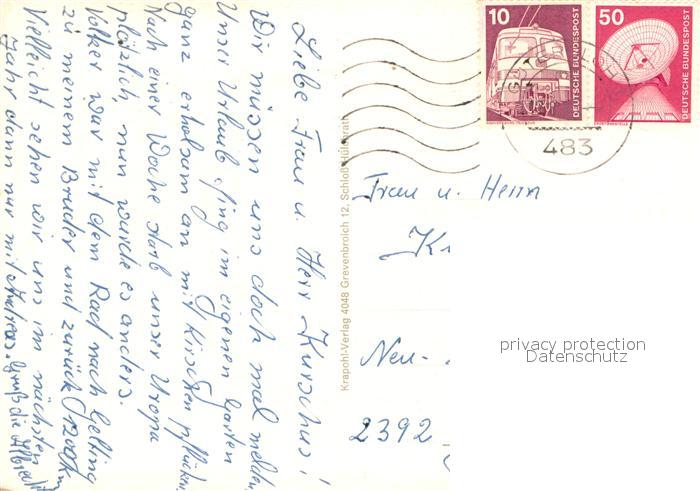 Liebe Frau u. Herr Kurschus!
Wir müssen uns doch mal melden
Unser Urlaub fing im eigenen Garten
ganz erholsam an mit Kirschen pflücken.
Nach einer Woche starb unser Uropa
plötzlich, nun wurde es anders.
Volker war mit dem Rad nach Gelting
zu meinem Bruder und zurück 1200 km
Vielleicht sehen wir uns im nächsten
Jahr dann nur mit Andreas. Gruß die
Krapohl-Verlag 4048 Grevenbroich 12, Schloß Hülchrath
10
DEUTSCHE BUNDESPOST
50
DEUTSCHE BUNDESPOST
483
Frau u. Herrn
Neu-
2392
privacy protection
Datenschutz